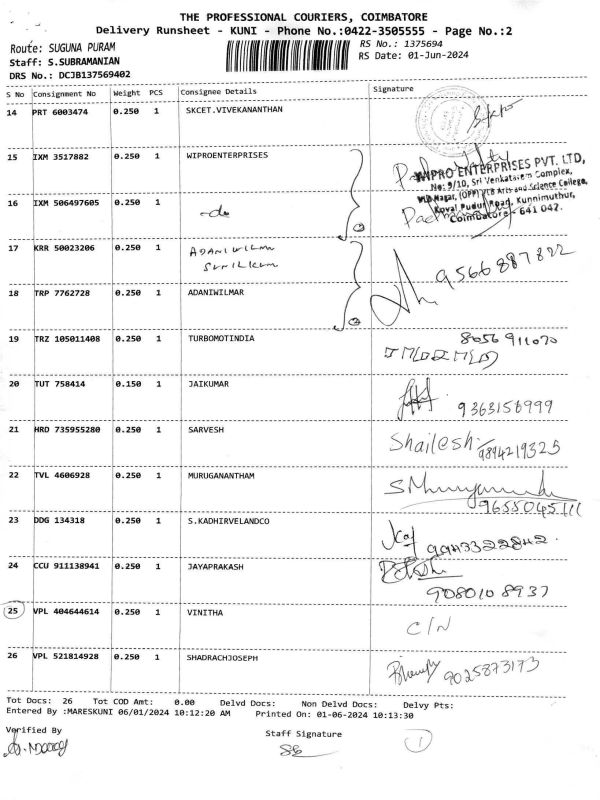 THE PROFESSIONAL COURIERS, COIMBATORE
Delivery Runsheet - KUNI - Phone No.:0422-3505555 - Page No.:2
Route: SUGUNA PURAM
RS No.: 1375694
Staff: S.SUBRAMANIAN
RS Date: 01-Jun-2024
DRS No.: DCJB137569402
S No Consignment No Weight PCS Consignee Details Signature
14 PRT 6003474 0.250 1 SKCET.VIVEKANANTHAN
15 IXM 3517882 0.250 1 WIPROENTERPRISES
WIPRO ENTERPRISES PVT. LTD,
No: 9/10, Sri Venkatesa Complex,
Arts and Science College,
Kovai Pudur Road, Kunnimuthur,
Coimbatore - 641 042.
16 IXM 506497605 0.250 1 -do
17 KRR 50023206 0.250 1 ADANIWILMA 9566887822
SUNILKUM
18 TRP 7762728 0.250 1 ADANIWILMAR
19 TRZ 105011408 0.250 1 TURBOMOTINDIA 8056911070
20 TUT 758414 0.150 1 JAIKUMAR 9363158999
21 HRD 735955280 0.250 1 SARVESH Shailesh 9894219325
22 TVL 4606928 0.250 1 MURUGANANTHAM
9655045111
23 DDG 134318 0.250 1 S.KADHIRVELANDCO 9943322842
24 CCU 911138941 0.250 1 JAYAPRAKASH
9080108937
25 VPL 404644614 0.250 1 VINITHA C/N
26 VPL 521814928 0.250 1 SHADRACHJOSEPH 9025873173
Tot Docs: 26 Tot COD Amt: 0.00 Delvd Docs: Non Delvd Docs: Delvy Pts:
Entered By :MARESKUNI 06/01/2024 10:12:20 AM Printed On: 01-06-2024 10:13:30
Verified By
Staff Signature
1